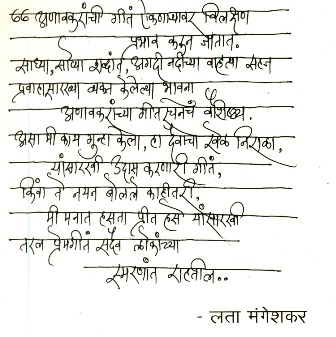 ❝ अणावकरांची गीतं ऐकणाऱ्यावर विलक्षण
प्रभाव करत जातात.
साध्या, सोप्या शब्दांत, अगदी नदीच्या वाहत्या सहज
प्रवाहासारख्या व्यक्त केलेल्या भावना
अणावकरांच्या गीतरचनेचं वैशिष्ट्य.
असा मी काय गुन्हा केला, हा दैवाचा खेळ निराळा,
यांसारखी उदास करणारी गीतं,
किंवा ते नयन बोलले काहीतरी,
मी मनात हसता प्रीत हसे यांसारखी
तरल प्रेमगीतं सदैव लोकांच्या
स्मरणांत राहतील..
- लता मंगेशकर